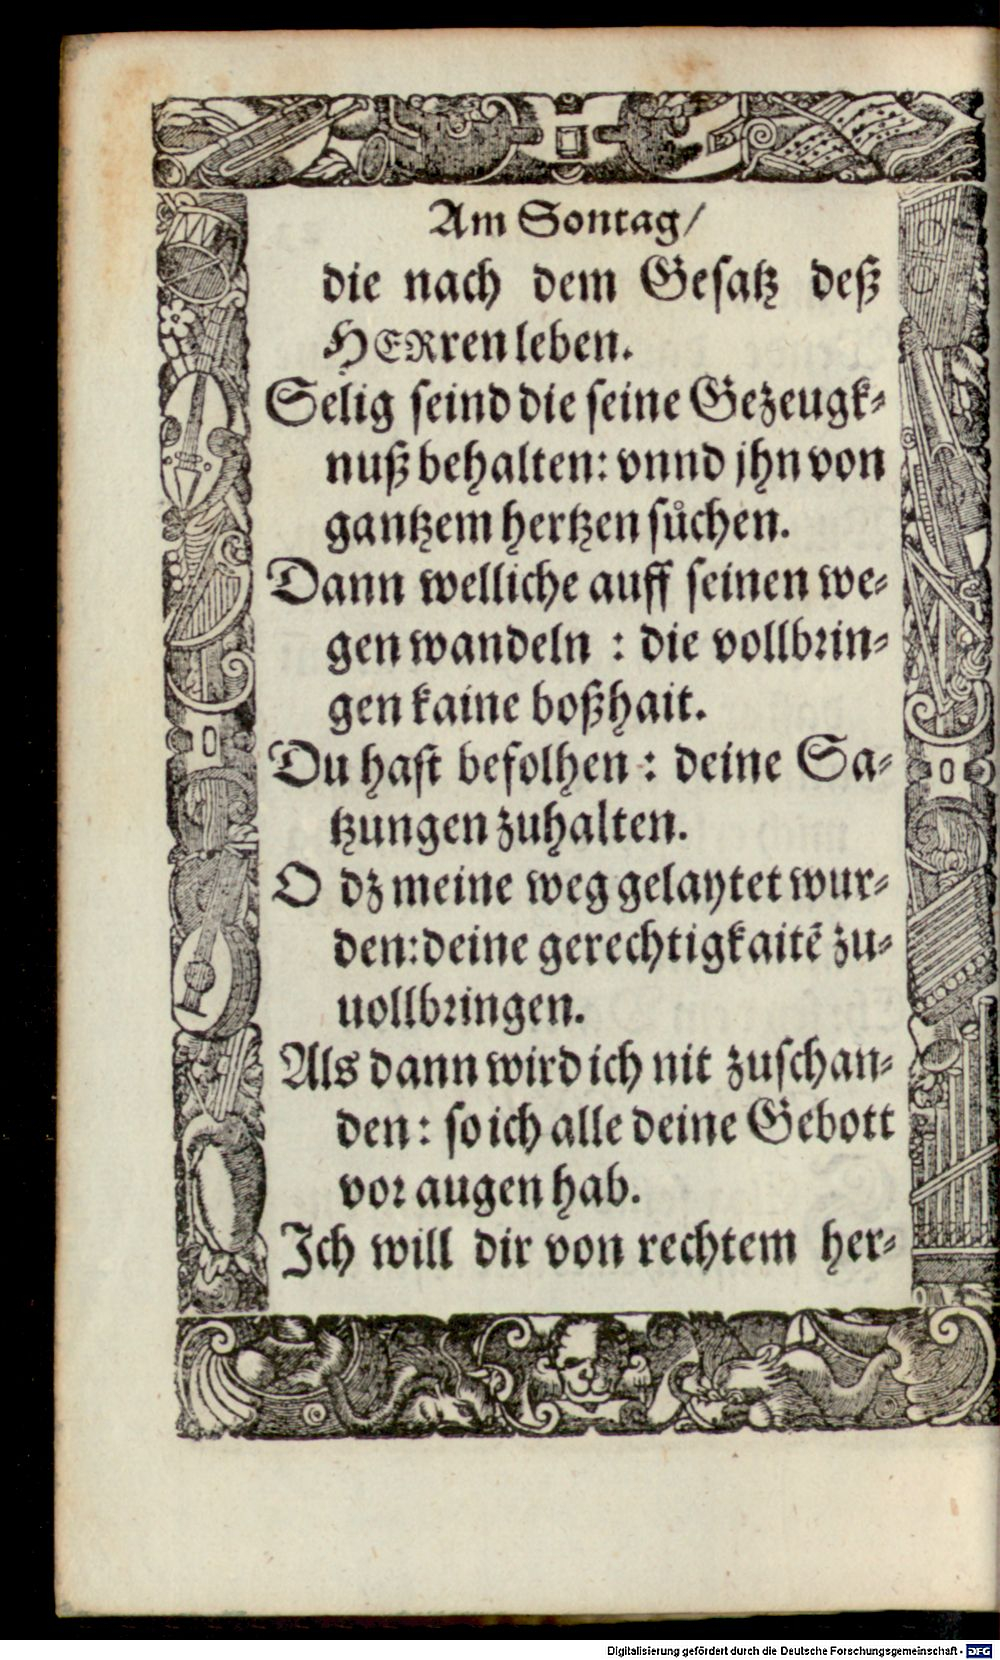 Am Sontag/
die nach dem Gesatz deß
HERren leben.
Selig seind die seine Gezeugk⸗
nuß behalten: vnnd jhn von
gantzem hertzen sůchen.
Dann welliche auff seinen we⸗
gen wandeln : die vollbrin⸗
gen kaine boßhait.
Du hast befolhen : deine Sa⸗
tzungen zuhalten.
O dz meine weg gelaytet wur⸗
den: deine gerechtigkaitẽ zu⸗
uollbringen.
Als dann wird ich nit zuschan⸗
den: so ich alle deine Gebott
vor augen hab.
Ich will dir von rechtem her⸗
Digitalisierung gefördert durch die Deutsche Forschungsgemeinschaft - DFG